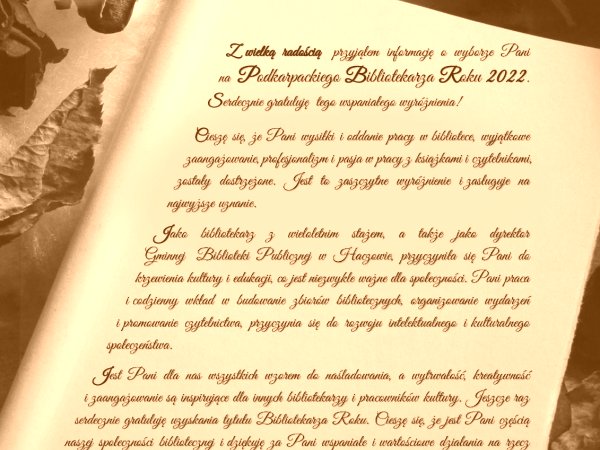 Z wielką radością przyjąłem informację o wyborze Pani
na Podkarpackiego Bibliotekarza Roku 2022.
Serdecznie gratuluję tego wspaniałego wyróżnienia!
Cieszę się, że Pani wysiłki i oddanie pracy w bibliotece, wyjątkowe
zaangażowanie, profesjonalizm i pasja w pracy z książkami i czytelnikami,
zostały dostrzeżone. Jest to zaszczytne wyróżnienie i zasługuje na
najwyższe uznanie.
Jako bibliotekarz z wieloletnim stażem, a także jako dyrektor
Gminnej Biblioteki Publicznej w Haczowie, przyczyniła się Pani do
krzewienia kultury i edukacji, co jest niezwykle ważne dla społeczności. Pani praca
i codzienny wkład w budowanie zbiorów bibliotecznych, organizowanie wydarzeń
i promowanie czytelnictwa, przyczynia się do rozwoju intelektualnego i kulturalnego
społeczeństwa.
Jest Pani dla nas wszystkich wzorem do naśladowania, a wytrwałość, kreatywność
i zaangażowanie są inspirujące dla innych bibliotekarzy i pracowników kultury. Jeszcze raz
serdecznie gratuluję uzyskania tytułu Bibliotekarza Roku. Cieszę się, że jest Pani częścią
naszej społeczności bibliotecznej i dziękuję za Pani wspaniałe i wartościowe działania na rzecz